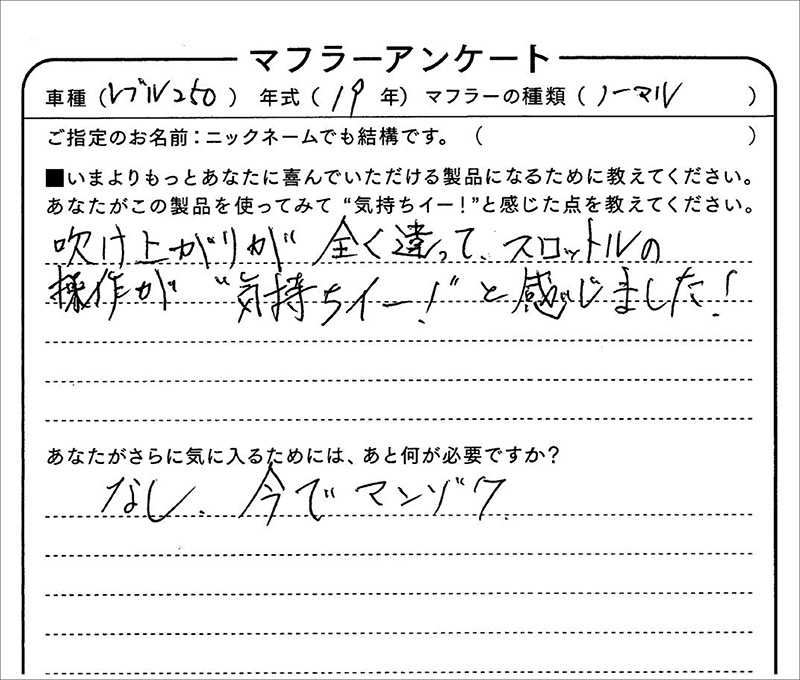 マフラーアンケート
車種（レブル250）　年式（19年）マフラーの種類（ノーマル　）
ご指定のお名前：ニックネームでも結構です。（　）
■いまよりもっとあなたに喜んでいただける製品になるために教えてください。
あなたがこの製品を使ってみて “気持ちイー！”と感じた点を教えてください。
吹け上がりが 全く違って、スロットルの
操作が “気持ちイー！” と感じました！
あなたがさらに気に入るためには、あと何が必要ですか？
なし、今でマンゾク